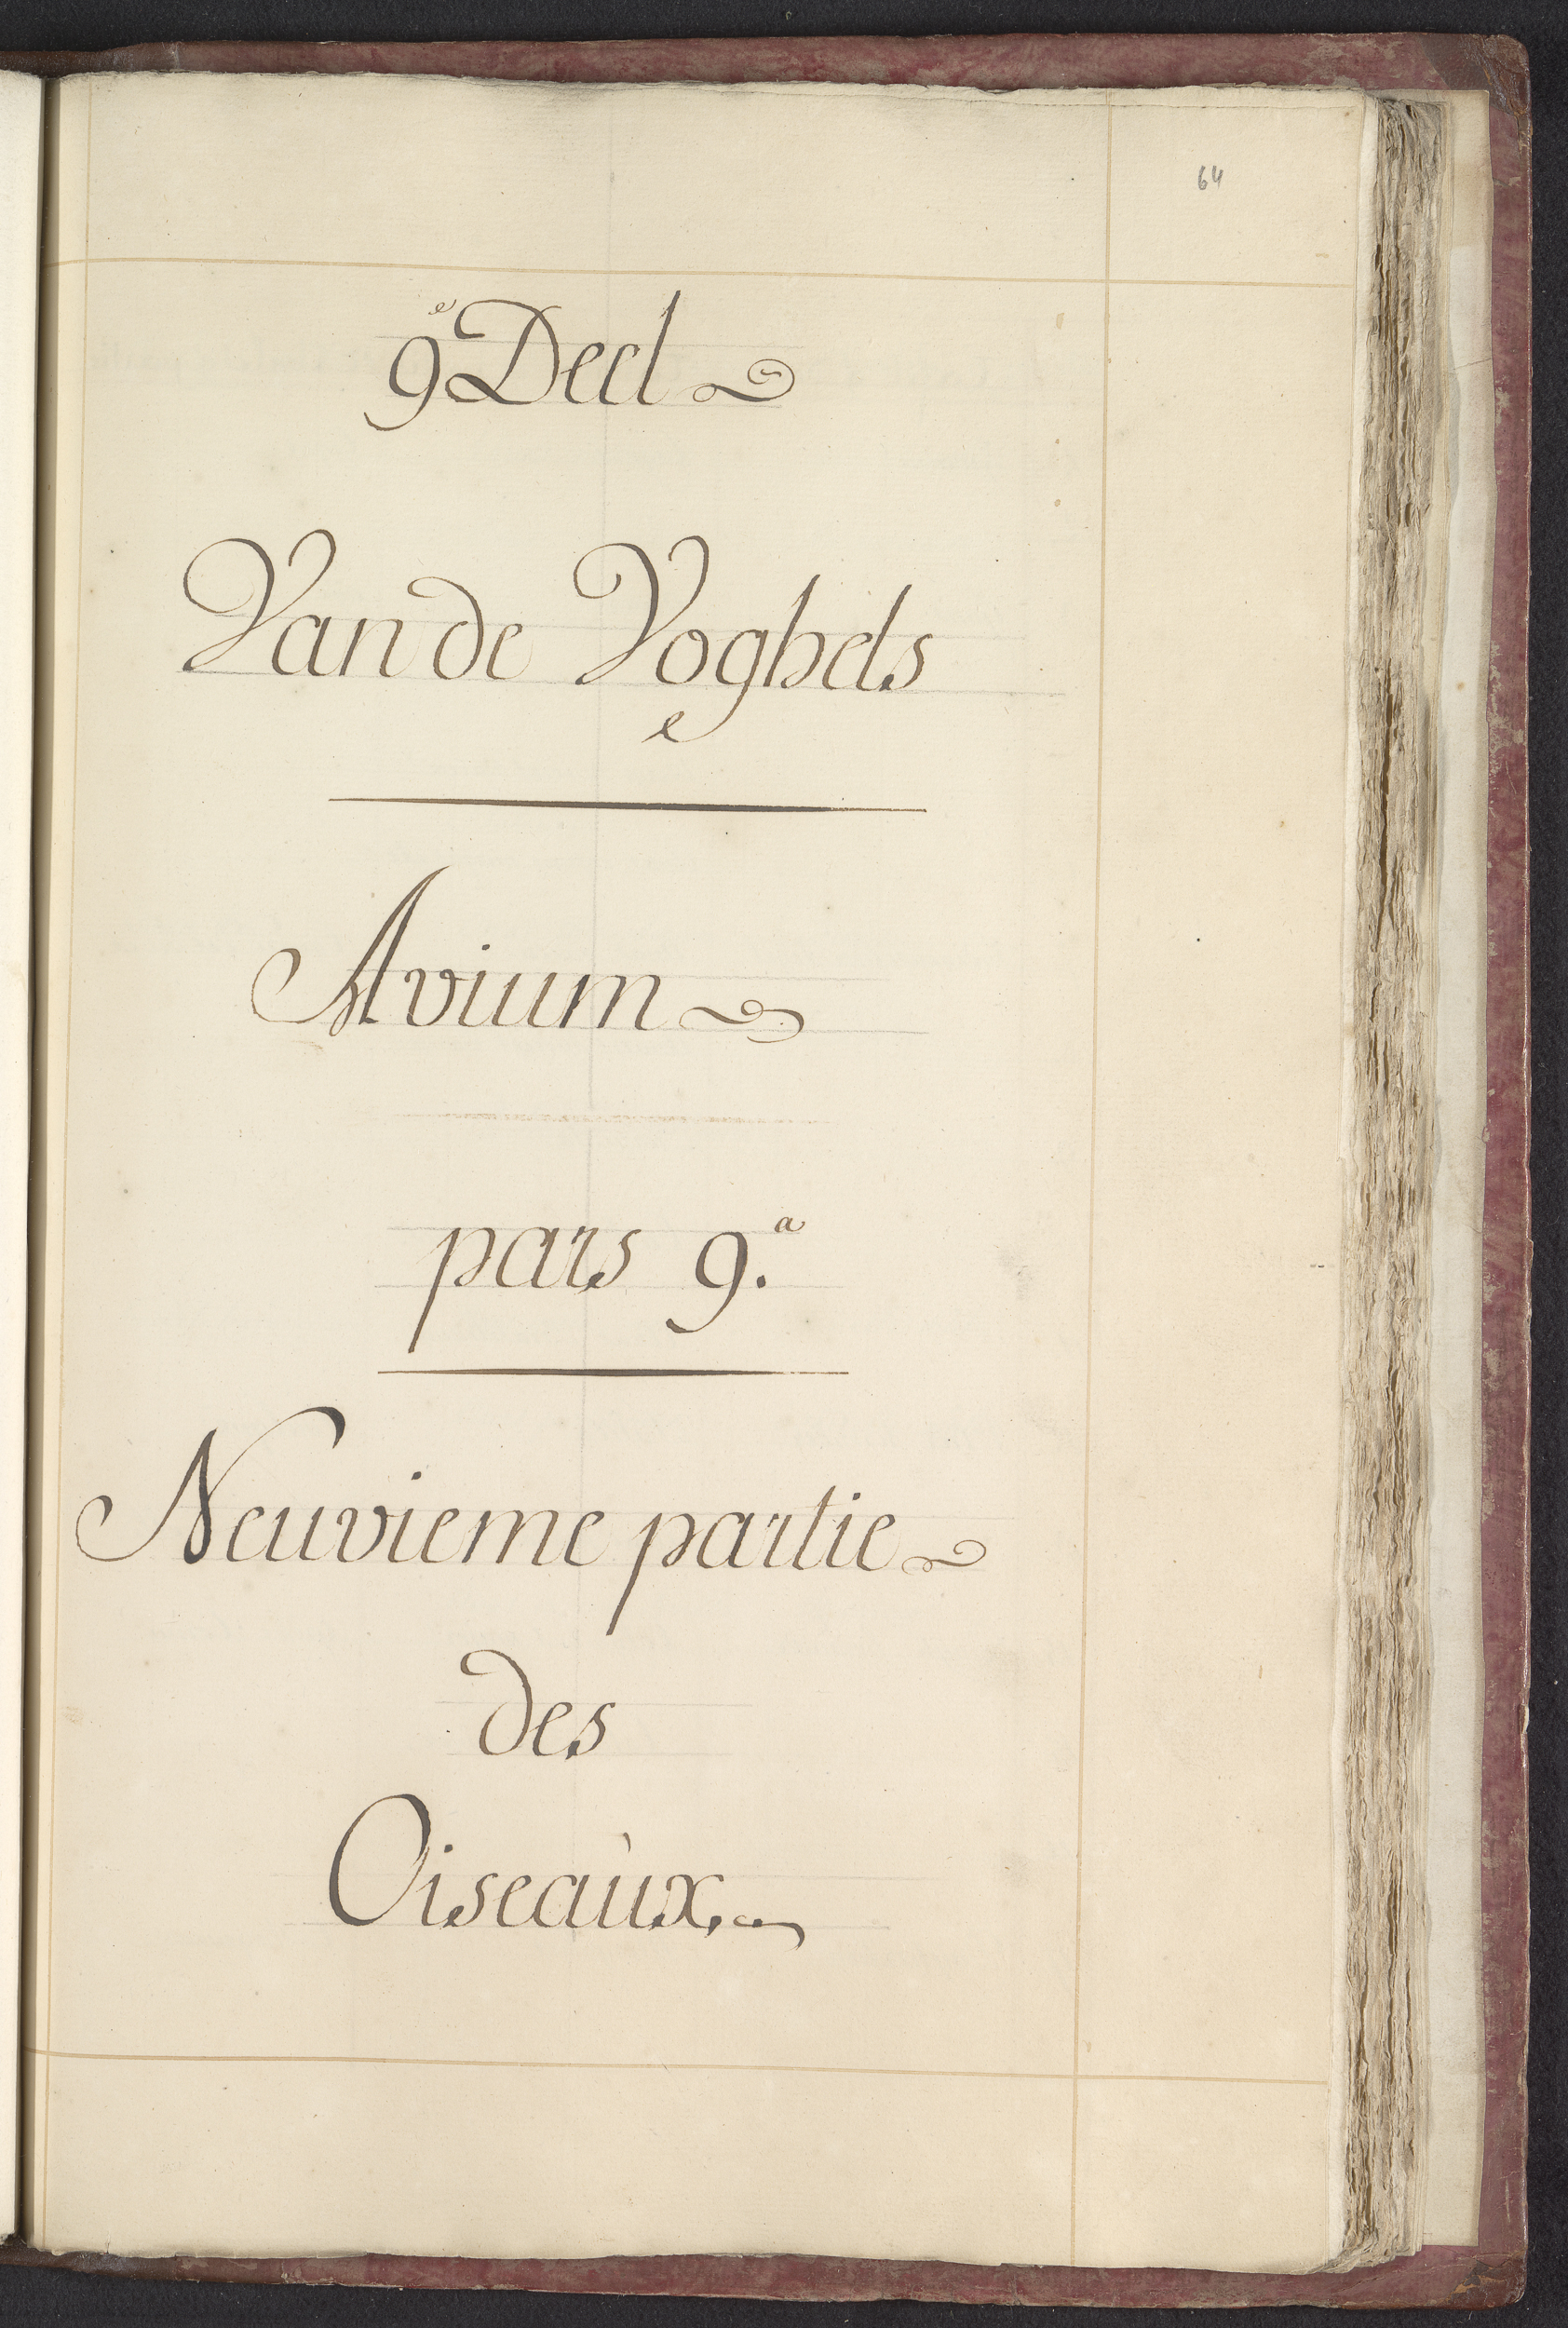 64
9e Deel
Van de Voghels
Avium
pars 9.a
Neuvieme partie
des
Oiseaùx.